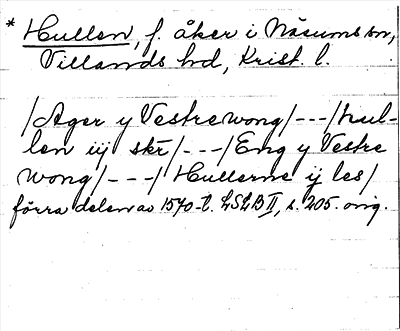 * Hullen, f. åker i Näsums sn,
Villands hd, Krist. l.
/Ager y Vestre wong/---/hul-
len iij skr/---/Eng y Vestre
wong/---/Hullerne ij les/
förra delen av 1570-t. LSLB II, s. 205. orig.